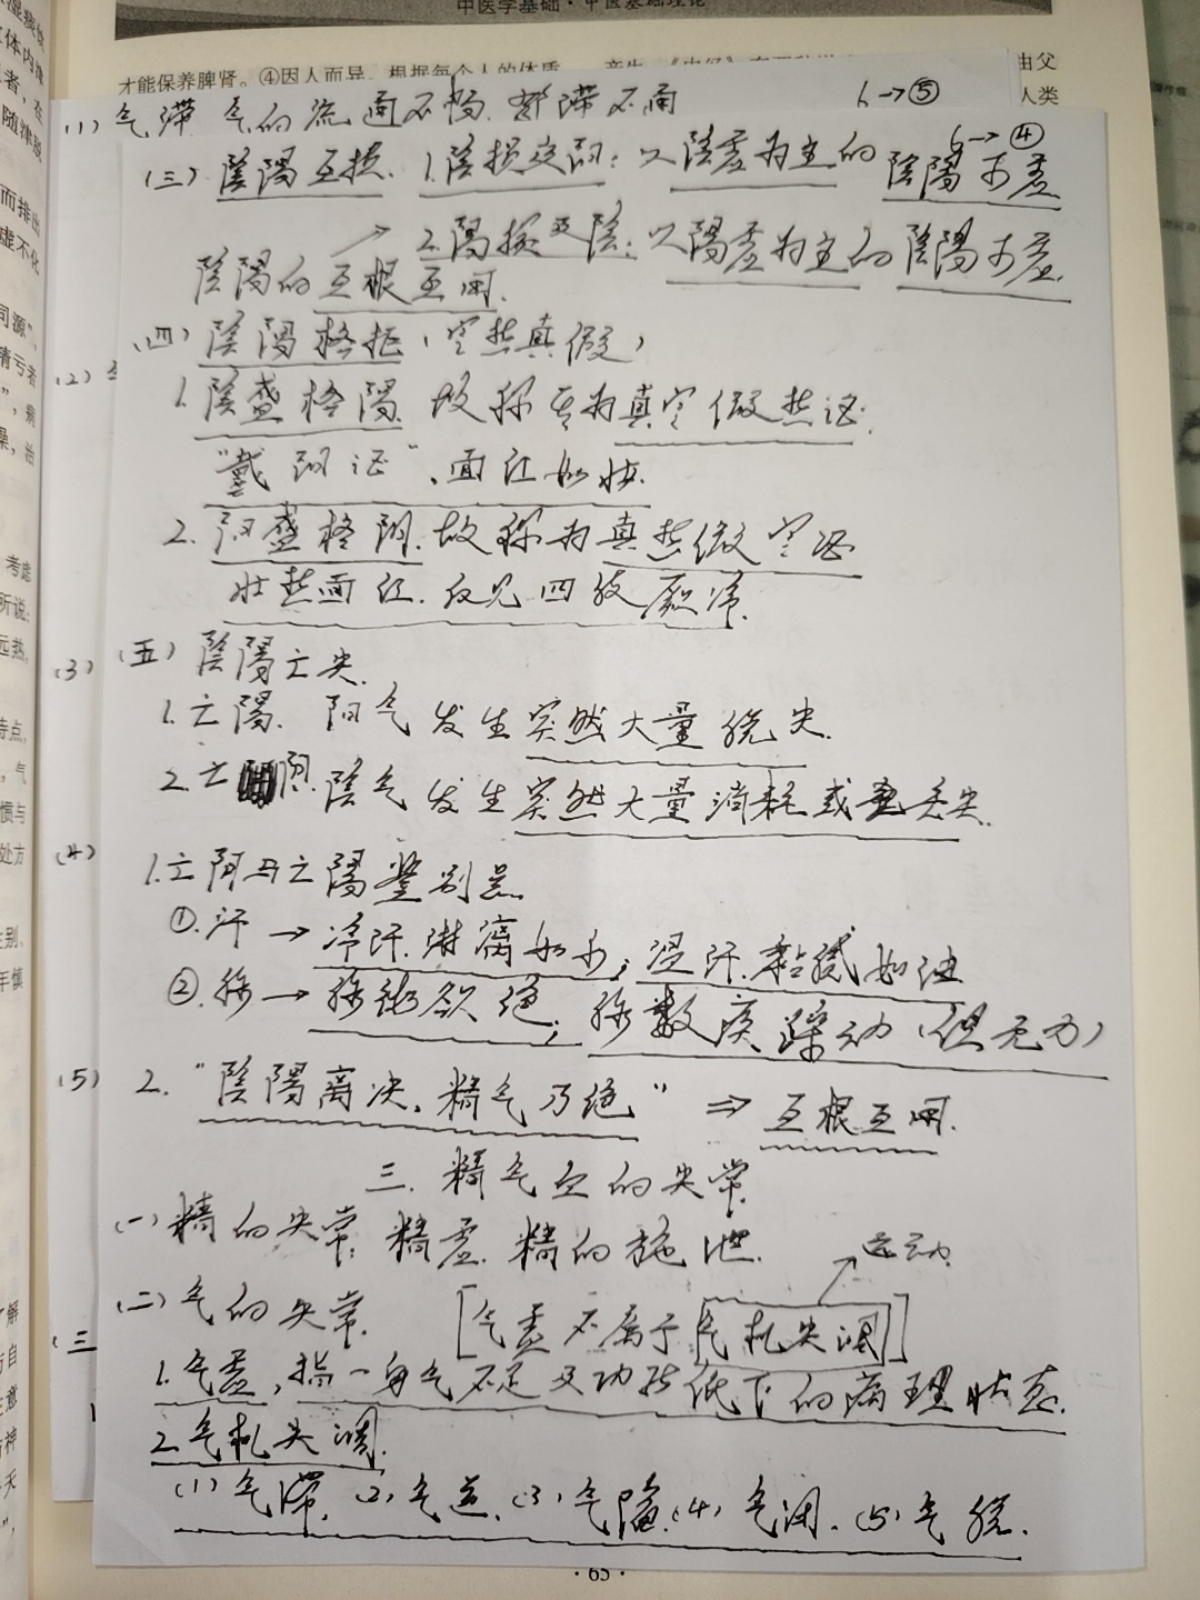 中医学基础·中医基础理论
才能保养脾肾。④因人而异，根据每个人的体质
由父
人类
(1) 气滞 气的流通不畅. 郁滞不通
6→⑤
6→④
(三) 陰陽互损. 1.陰损及阳: 以陰虚为主的陰陽方虚
2.陽损及陰: 以陽虚为主的陰陽方虚.
陰陽的互根互用.
(四) 陰陽格拒 (寒热真假)
1.陰盛格陽. 故称其为真寒假热证.
"戴阳证"、面红如妆.
2. 阳盛格阴. 故称为真热假寒证
壮热面红. 反见四肢厥冷.
(五) 陰陽亡失.
1.亡陽. 阳气发生突然大量脱失.
2.亡阴. 陰气发生突然大量消耗或丢失.
1.亡阴与亡陽鉴别点
①.汗 → 冷汗.淋漓如水; 湿汗.粘腻如油
②.脉 → 脉微欲绝; 脉数疾躁动 (但无力)
2. "陰陽离决、精气乃绝" ⇒ 互根互用.
三. 精气血的失常
(一) 精的失常: 精虚. 精的施泄.
运动
(二) 气的失常. [气虚不属于气机失调]
1.气虚, 指一身气不足及功能低下的病理状态.
2.气机失调.
(1) 气滞. (2) 气逆. (3) 气陷. (4) 气闭. (5) 气脱.
(2)
(3)
(4)
(5)
(三
·65·